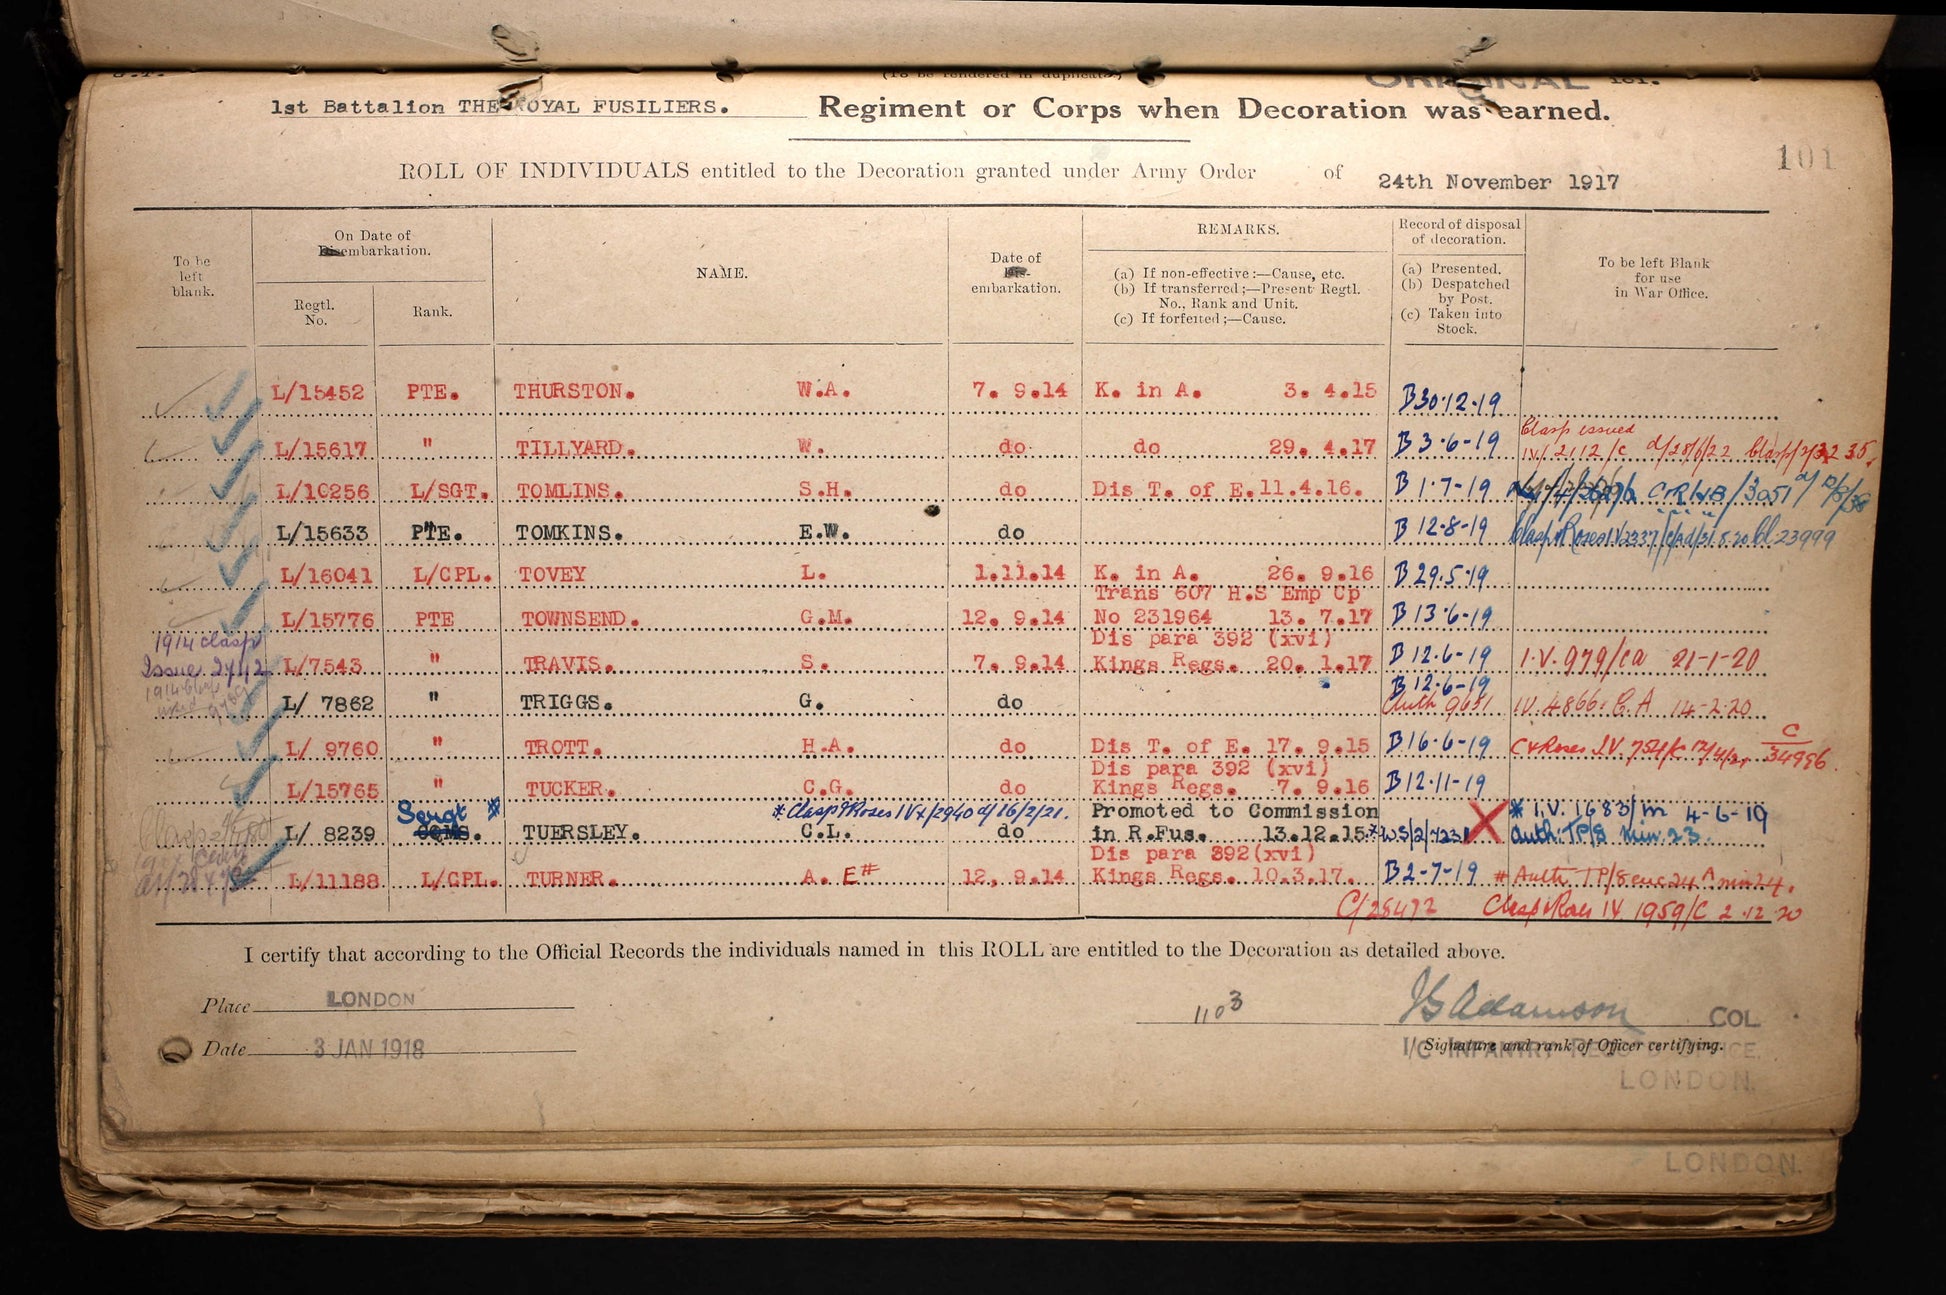 (To be rendered in duplicate.)
ORIGINAL
1st Battalion THE ROYAL FUSILIERS. Regiment or Corps when Decoration was earned.
101
ROLL OF INDIVIDUALS entitled to the Decoration granted under Army Order of 24th November 1917
To be left blank.
On Date of embarkation.
Regtl. No.
Rank.
NAME.
Date of embarkation.
REMARKS.
(a) If non-effective:—Cause, etc.
(b) If transferred;—Present Regtl. No., Rank and Unit.
(c) If forfeited;—Cause.
Record of disposal of decoration.
(a) Presented.
(b) Despatched by Post.
(c) Taken into Stock.
To be left Blank for use in War Office.
L/15452 PTE. THURSTON. W.A. 7. 9.14 K. in A. 3. 4.15 B 30.12.19
Clasp issued
L/15617 " TILLYARD. W. do do 29. 4.17 B 3.6-19 IV/2112/C
L/10256 L/SGT. TOMLINS. S.H. do Dis T. of E. 11.4.16. B 1.7-19
L/15633 PTE. TOMKINS. E.W. do B 12-8-19 Clasp & Roses IV 2337/ 23999
L/16041 L/CPL. TOVEY L. 1.11.14 K. in A. 26. 9.16 B 29.5.19
Trans 607 H.S Emp Cp
L/15776 PTE TOWNSEND. G.M. 12. 9.14 No 231964 13. 7.17 B 13.6-19
1914 clasp
Dis para 392 (xvi)
Issue L/7543 " TRAVIS. S. 7. 9.14 Kings Regs. 20. 1.17 B 12.6-19 I.V. 979/CA 21-1-20
B 12.6-19
L/ 7862 " TRIGGS. G. do Auth 9651 IV. 4866. C.A 14-2-20
L/ 9760 " TROTT. H.A. do Dis T. of E. 17. 9.15 B 16.6-19 C & Roses I.V. 754/C C/34996
Dis para 392 (xvi)
L/15765 " TUCKER. C.G. do Kings Regs. 7. 9.16 B 12-11-19
Sergt * * Clasp & Roses IV x/2940 d/16/2/21. Promoted to Commission * I.V. 1683/M 4-6-19
L/ 8239 CQMS. TUERSLEY. C.L. do in R.Fus. 13.12.15. Auth: TP/8 Min. 23.
Dis para 392(xvi)
L/11188 L/CPL. TURNER. A. E# 12. 9.14 Kings Regs. 10.3.17. B 2-7-19 # Auth TP/8 enc 24A min 24.
C/28472 Clasp & Roses IV 1959/C 2.12.20
I certify that according to the Official Records the individuals named in this ROLL are entitled to the Decoration as detailed above.
Place LONDON
1103
Adamson COL
Date 3 JAN 1918
Signature and rank of Officer certifying.
I/C INFANTRY
LONDON.
LONDON.